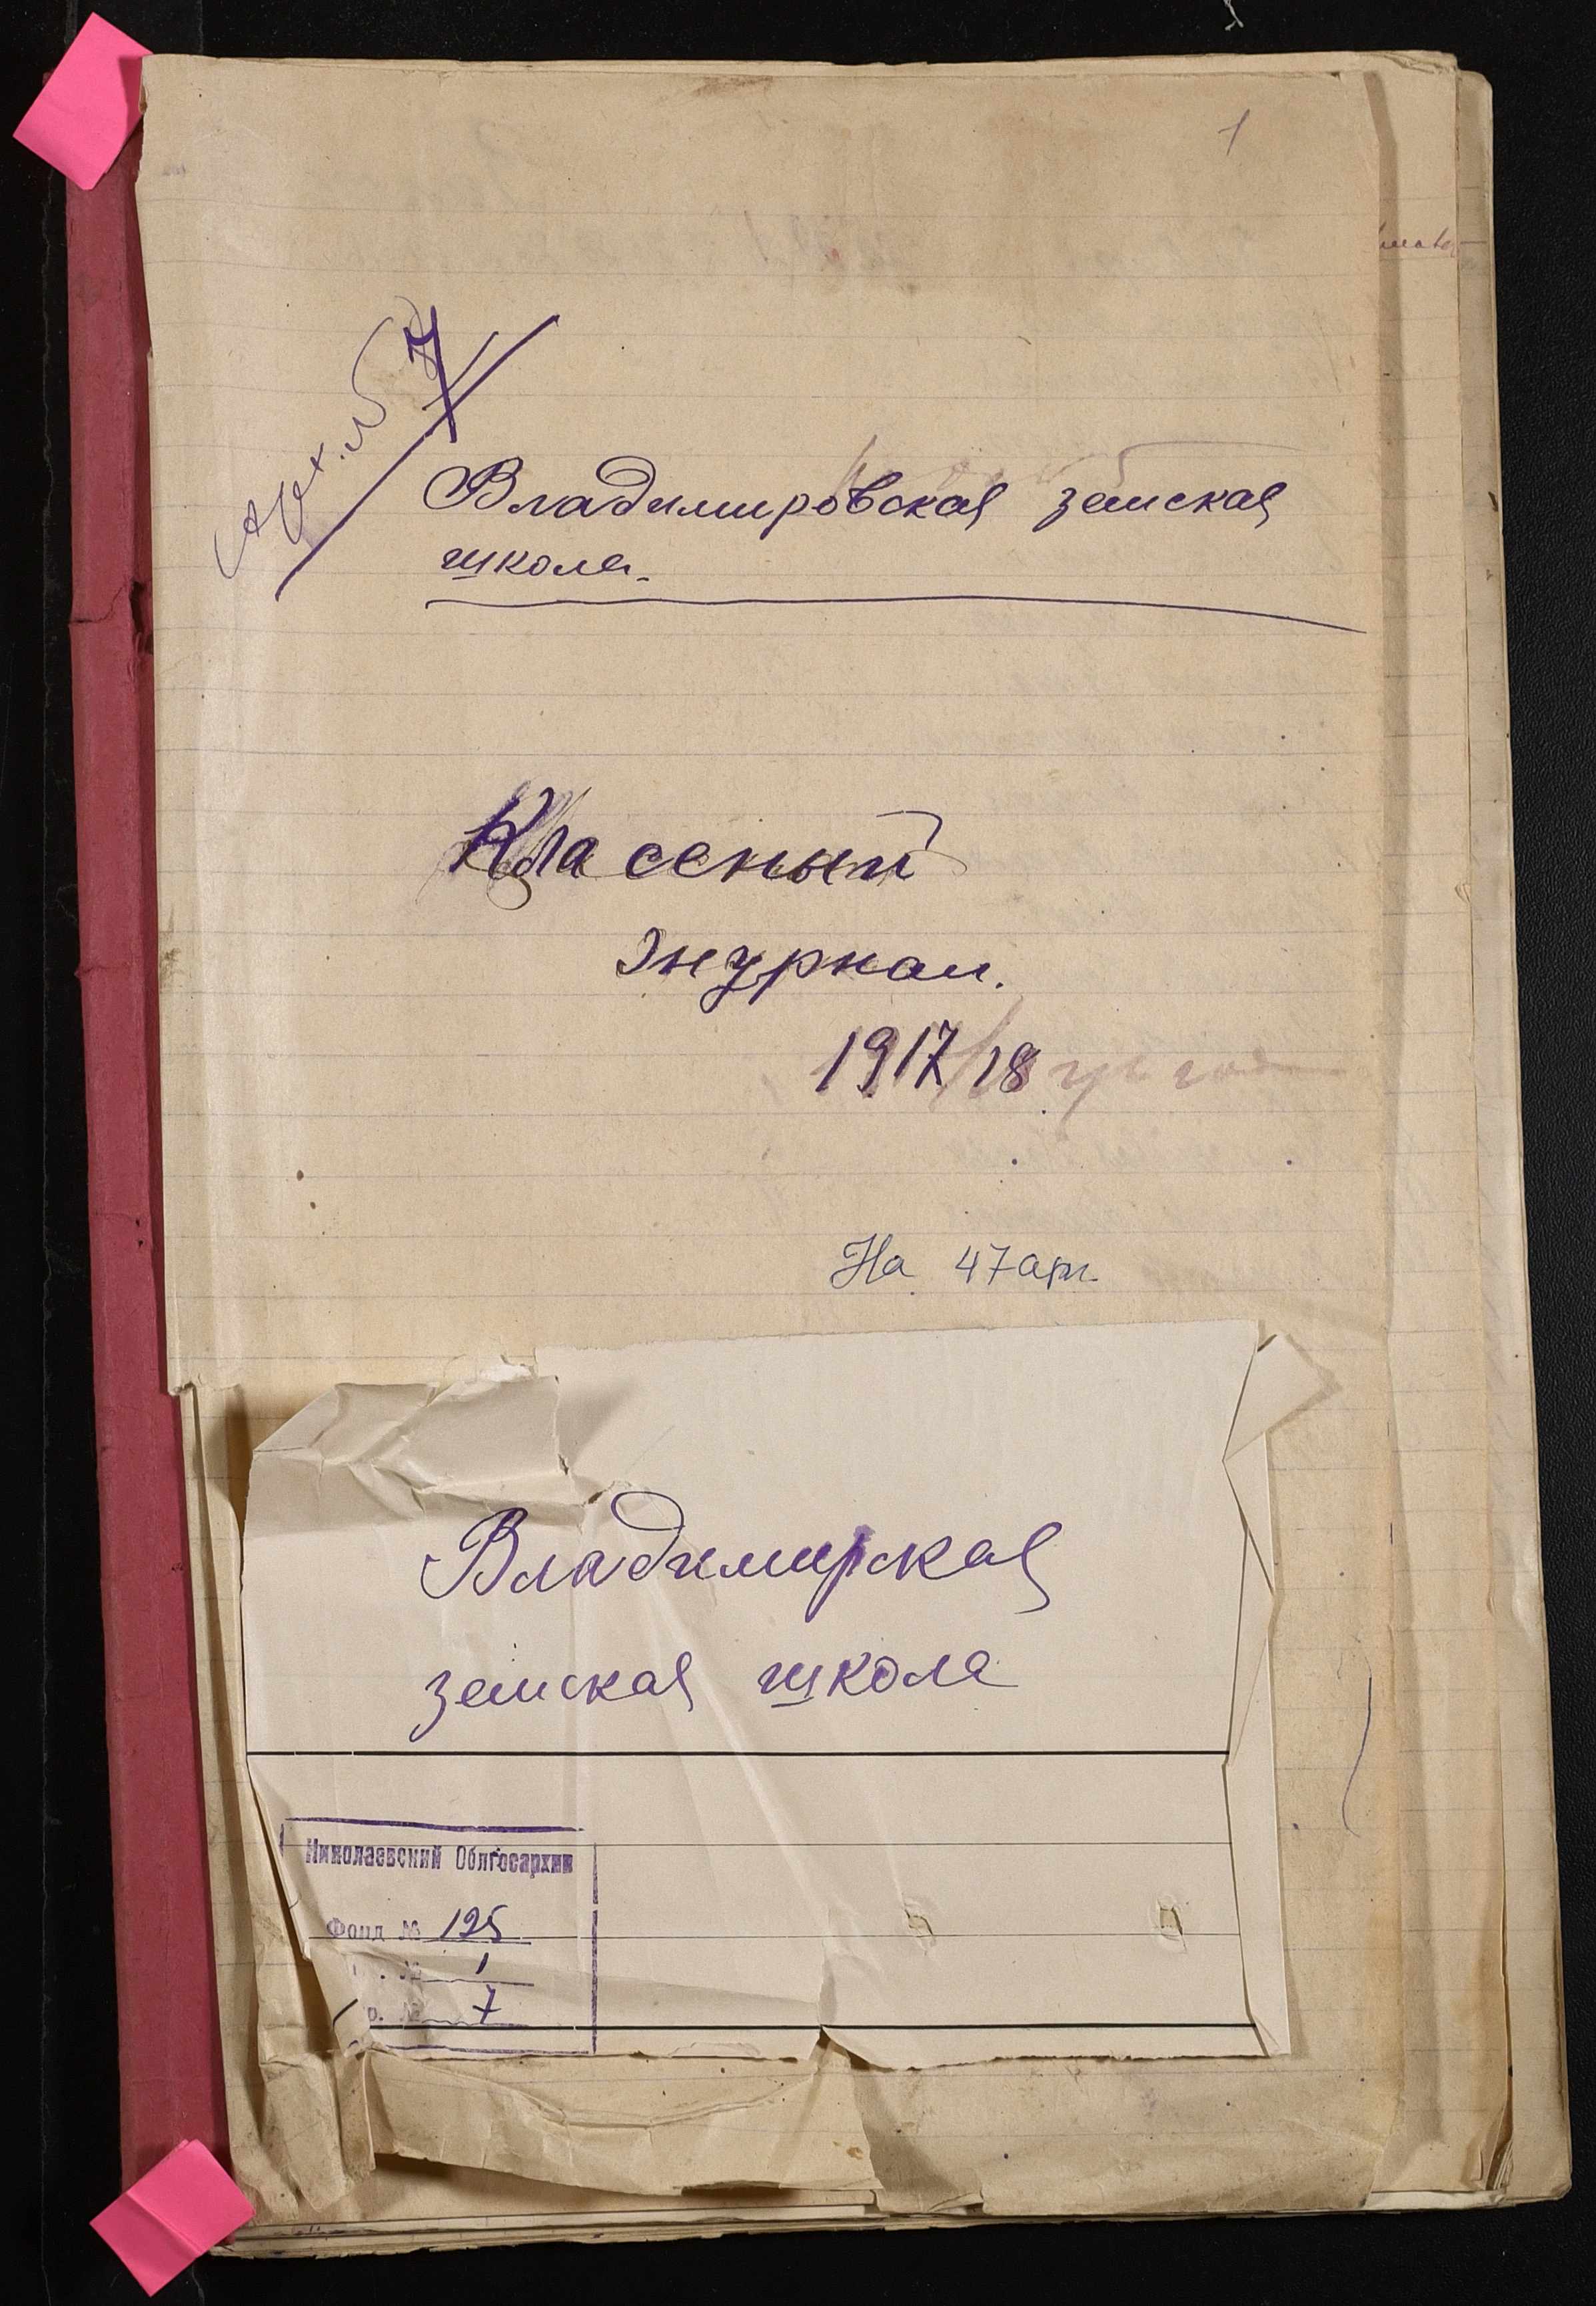 1
Арх. № 7
Владимировская земская
школа.
Классный
журнал.
1917/18 уч. год
На 47 арк.
Владимирская
земская школа
Николаевский Облгосархив
Фонд № 125
. № 1
р. № 7